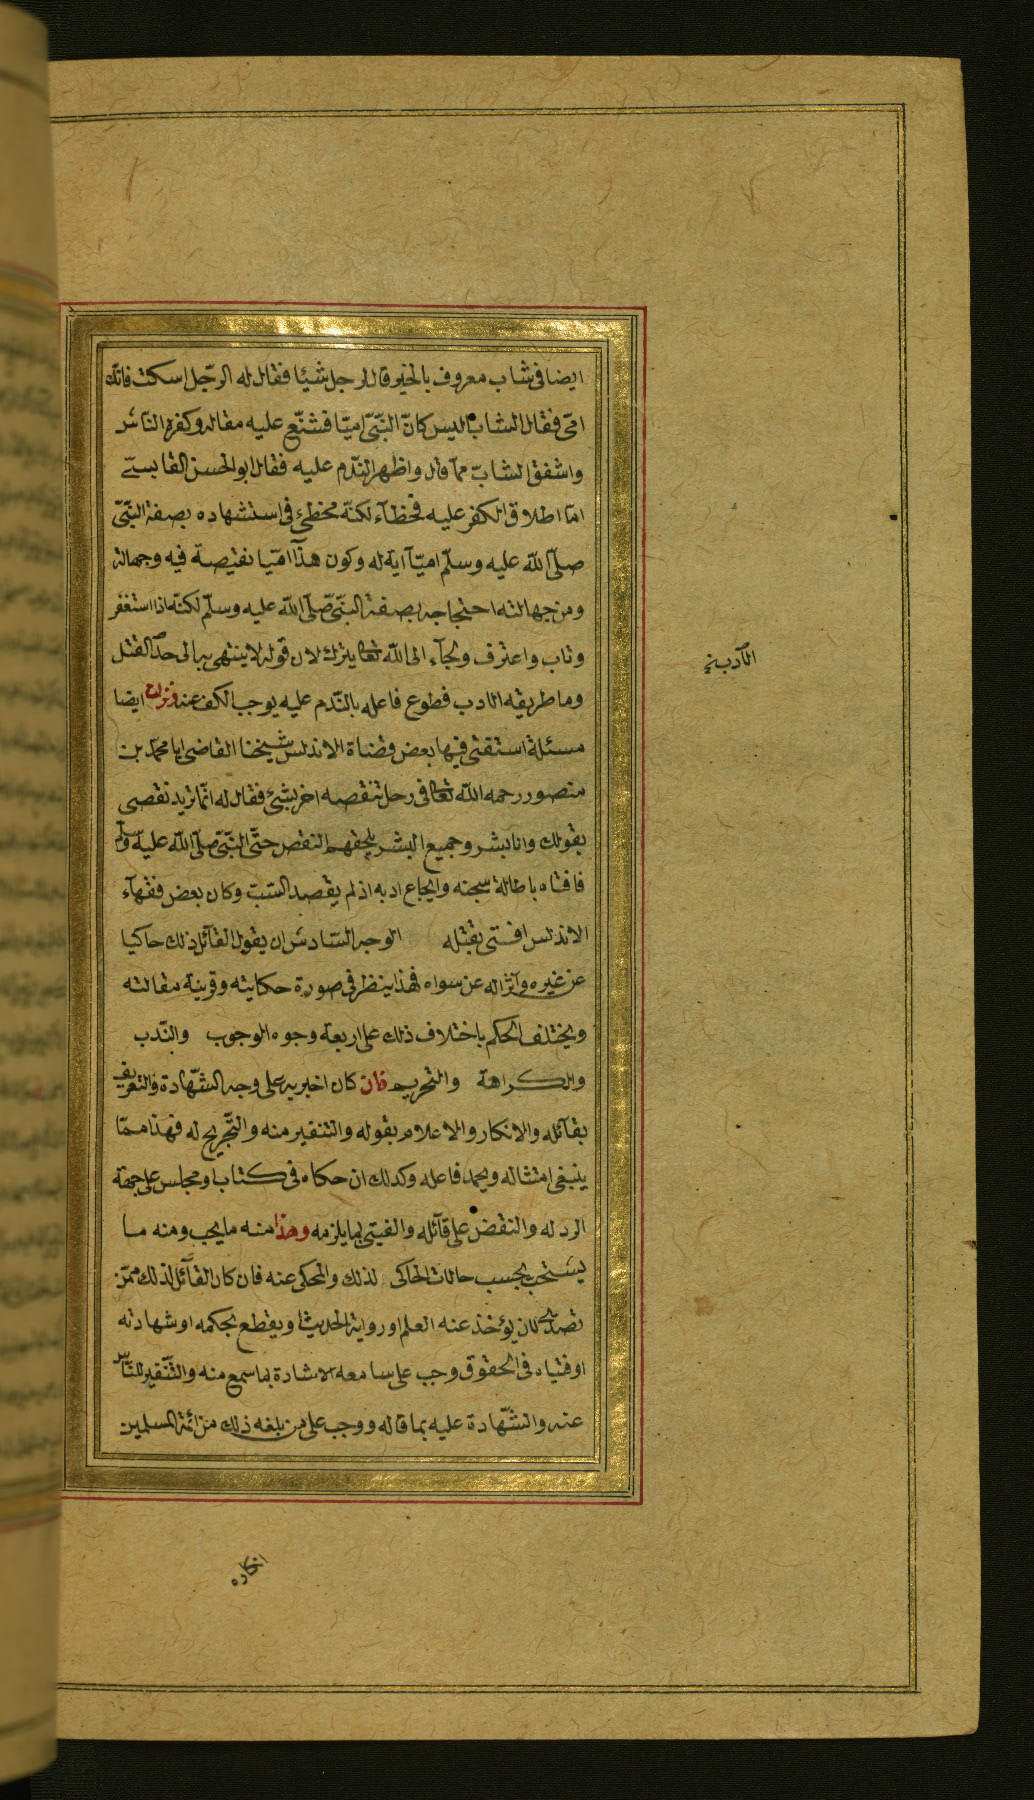 ايضا فى شاب معروف بالخير قال لرجل شيئا فقال له الرجل اسكت فانك
امى فقال الشاب اليس كان النبى اميا فشنع عليه مقاله وكفره الناس
واشفق الشاب مما قال واظهر الندم عليه فقال ابو الحسن القابسى
اما اطلاق الكفر عليه فخطاء لكنه مخطئ فى استشهاده بصفة النبى
صلى الله عليه وسلم اميا آية له وكون هذا اميا نقيصة فيه وجهالة
ومن جهالته احتجاجه بصفة النبى صلى الله عليه وسلم لكنه اذا استغفر
وتاب واعترف ولجاء الى الله تعالى يترك لان قوله لا ينتهى به الى حد القتل
وما طريقه الادب فطوع فاعله بالندم عليه يوجب الكف عنه ونزلت ايضا
مسئلة استفتى فيها بعض قضاة الاندلس شيخنا القاضى ابا محمد بن
منصور رحمه الله تعالى فى رجل تنقصه اخر بشئ فقال له انما تريد نقصى
بقولك وانا بشر وجميع البشر يلحقهم النقص حتى النبى صلى الله عليه وسلم
فافتاه باطالة سجنه وايجاع ادبه اذ لم يقصد السب وكان بعض فقهاء
الاندلس افتى بقتله الوجه السادس ان يقول القائل ذلك حاكيا
عن غيره وآثرا له عن سواه فهذا ينظر فى صورة حكايته وقرينة مقالته
ويختلف الحكم باختلاف ذلك على اربعة وجوه الوجوب والندب
والكراهة والتحريم فان كان اخبر به على وجه الشهادة والتعريف
بقائله والانكار والاعلام بقوله والتنفير منه والتجريح له فهذا مما
ينبغى امتثاله ويحمد فاعله وكذلك ان حكاه فى كتاب او مجلس على جهة
الرد له والنقض على قائله والفيتى بما يلزمه وهذا منه ما يجب ومنه ما
يستحب بحسب حالات الحاكى لذلك والمحكى عنه فان كان القائل لذلك ممن
تصدى لان يؤخذ عنه العلم او رواية الحديث او يقطع بحكمه او شهادته
او فتياه فى الحقوق وجب على سامعه الاشادة بما سمع منه والتنفير للناس
عنه والشهادة عليه بما قاله ووجب على من بلغه ذلك من ائمة المسلمين
انكاره